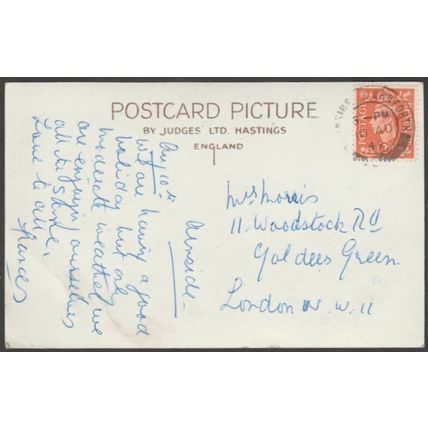 POSTCARD PICTURE
BY JUDGES' LTD. HASTINGS
ENGLAND
POSTAGE
PM
AU
47
Arnside.
Aug 10th
We are having a good
holiday but only
moderate weather, we
are enjoying ourselves
all the same.
Love to all,
Frances
Mrs Morris
11. Woodstock Rd
Golders Green.
London N.W.11